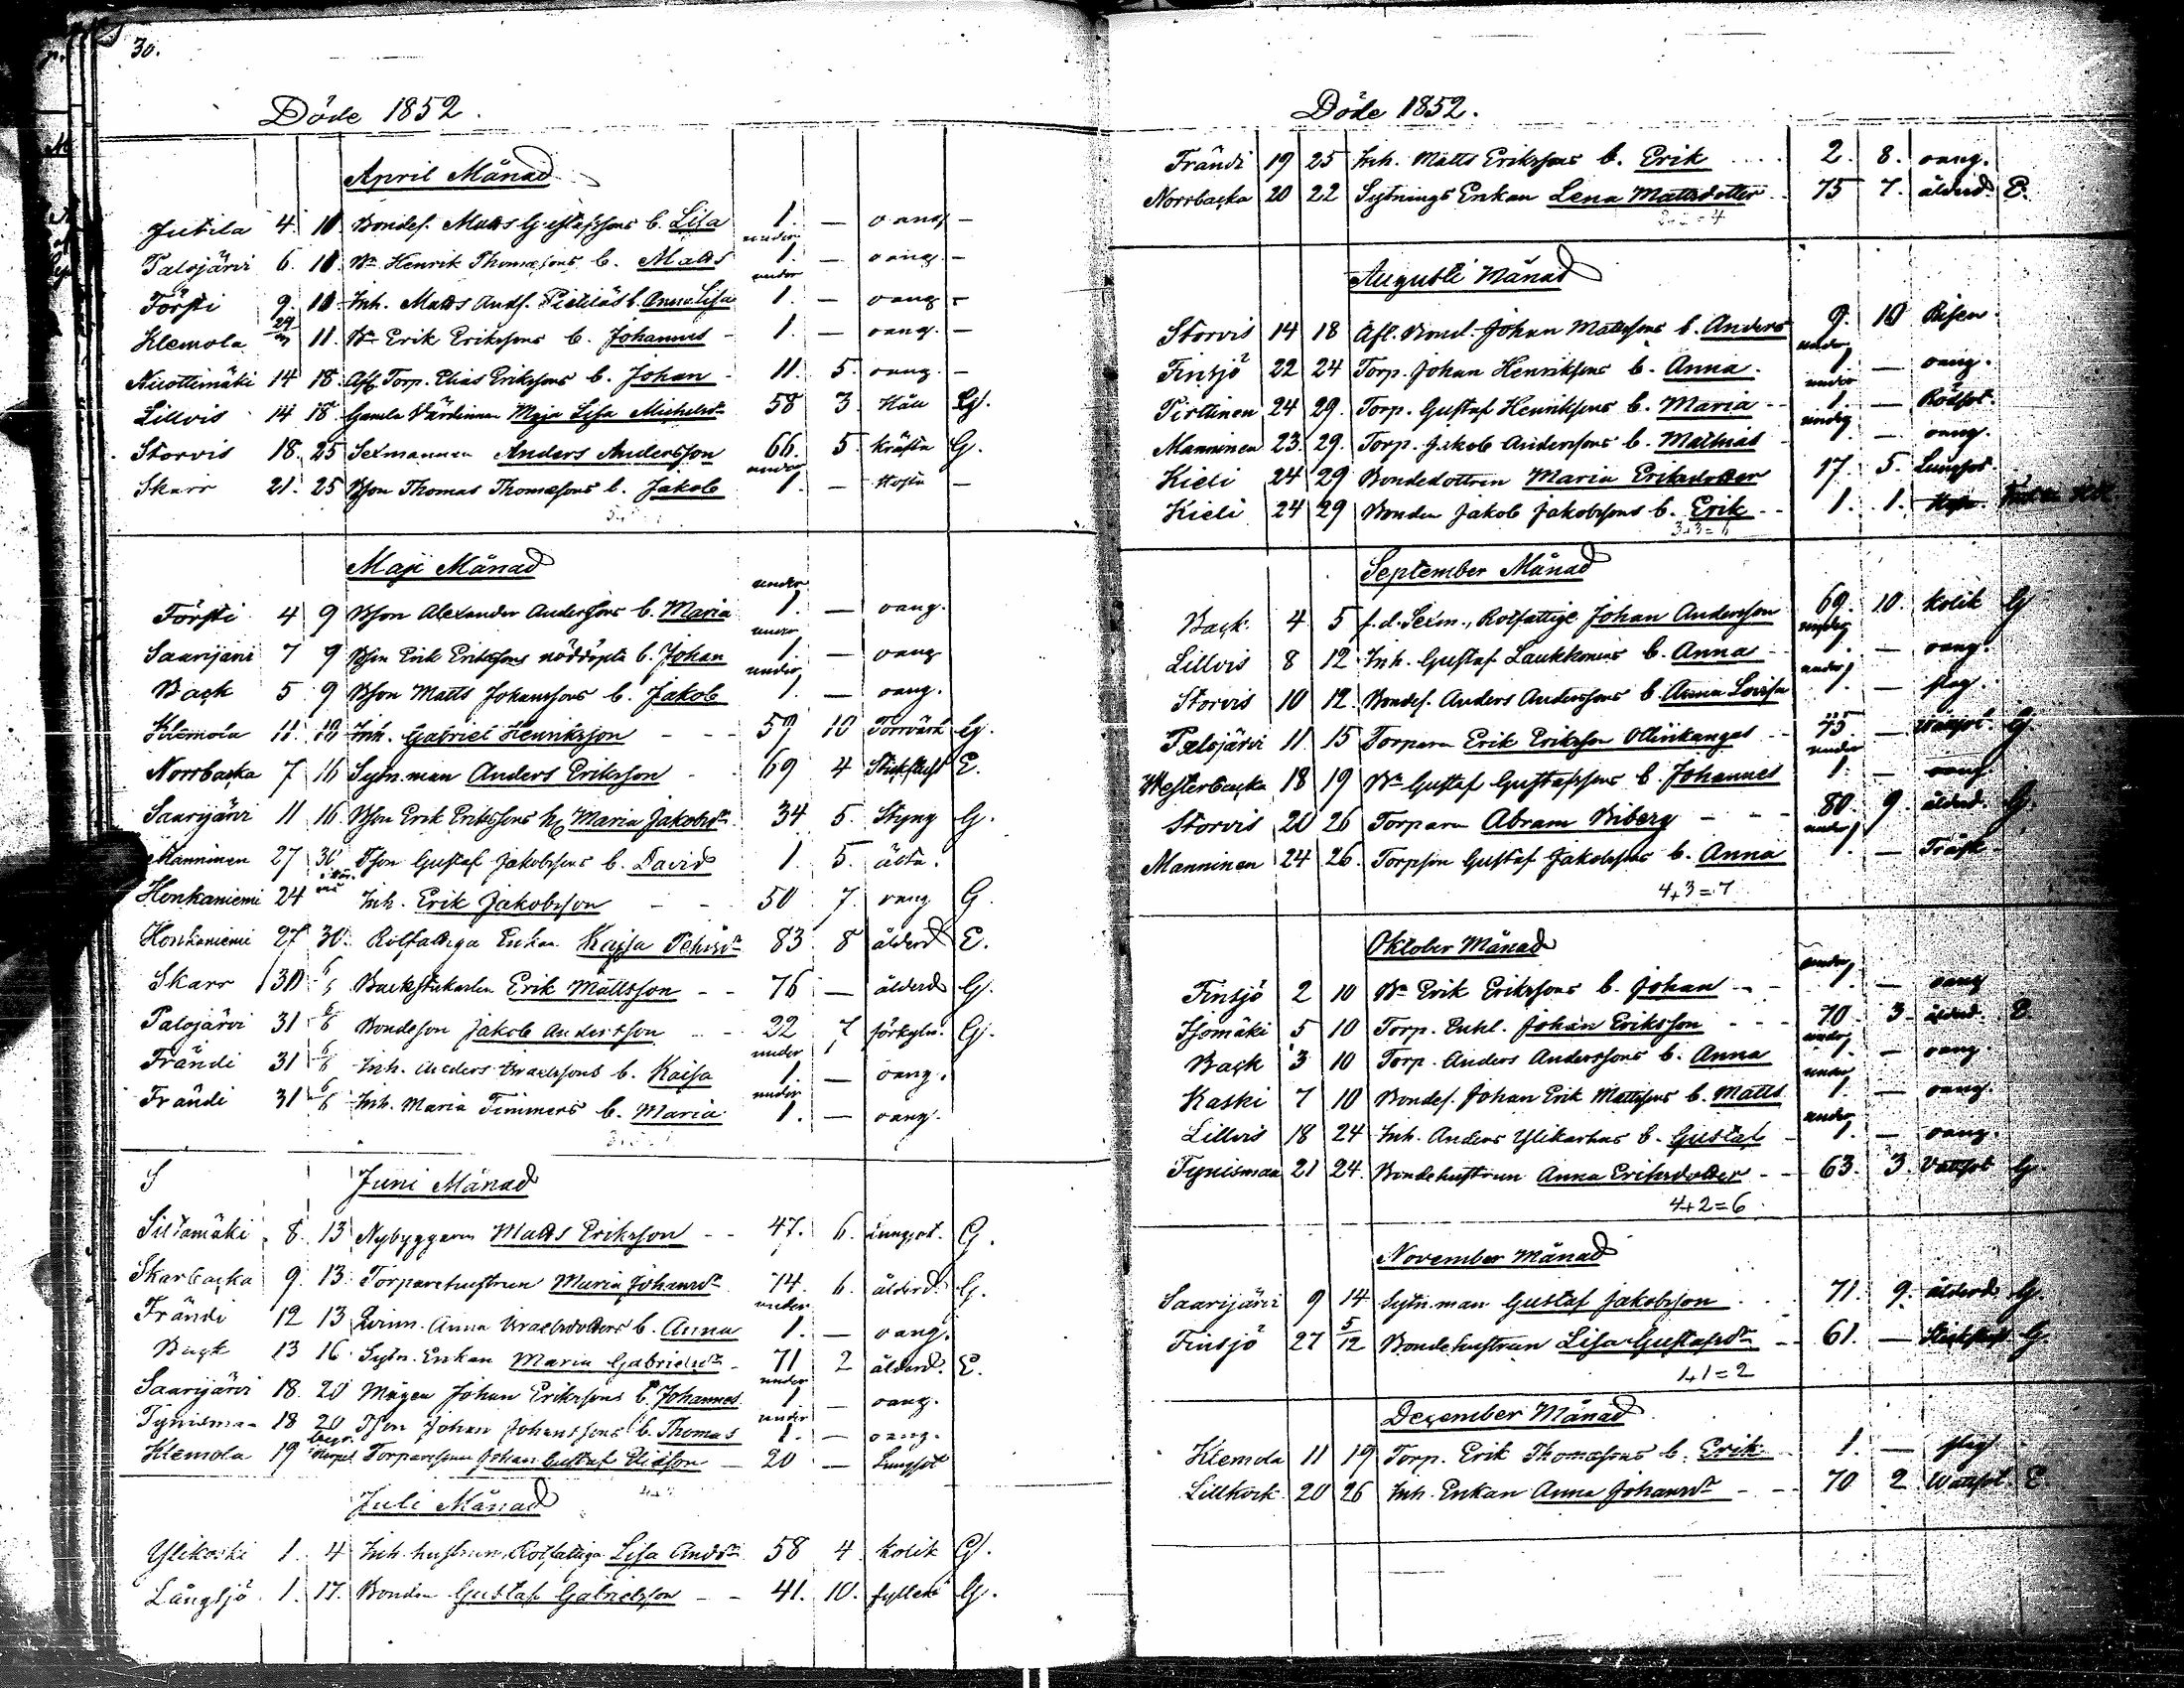 30.
Döde 1852.
April Månad
Jutila 4. 10. Bondes. Matts Gustafssons b. Lisa 1. — oang —
Palojärvi 6. 10. Bn Henrik Thomæsons b. Matts under 1. — oang. —
Försti 9. 10. Inh. Matts Ands. Pietiläs b. Anna Lisa under 1. — oang —
Klemola 29/3 11. Bn Erik Erikssons b. Johannes 1. — oang. —
Nuottimäki 14 18. Afl. Torp. Elias Erikssons b. Johan 11. 5. oang. —
Lillvis 14 18. Gamla Värdinnan Maja Lisa Michelsdr 58 3. Håll G.
Storvis 18. 25 Sexmannen Anders Andersson 66. 5. kräfta G.
Skarr 21. 25 Bson Thomas Thomæsons b. Jakob under 1. — Hosta —
Maji Månad
Försti 4 9 Bson Alexander Anderssons b. Maria under 1. — oang.
Saarijärvi 7 9 Bson Erik Erikssons nöddöpta b. Johan under 1. — oang
Back 5 9 Bson Matts Johanssons b. Jakob under 1 — oang.
Klemola 11. 18 Inh. Gabriel Henriksson - - - 59 10 Torrvärk G.
Norrbacka 7 16 Sytn.man Anders Eriksson - 69 4 Stickfluss E.
Saarijärvi 11 16 Bson Erik Erikssons h. Maria Jakobsdr 34 5. Styng G.
Manninen 27 30 Tson Gustaf Jakobssons b. David 1. 5. älta.
Honkaniemi 24 Inh. Erik Jakobsson - - 50 7. oang G.
Honkaniemi 27 30. Rotfattiga Enkan Kajsa 83. 8 ålderd E.
Skarr 30 Backstukarlen Erik Mattsson - - 76 — ålderd G.
Palojärvi 31 6/6 Bondeson Jakob Andersson - - 22 7 förkyln. G.
Frändi 31 6/6 Inh. Anders Israelssons b. Kaisa under 1. — oang.
Frändi 31 6/6 Inh. Maria Timmers b. Maria under 1. — oang.
Juni Månad
Siltamäki 8. 13 Nybyggaren Matts Eriksson - - 47. 6. Lungsot. G.
Skarbacka 9. 13. Torparehustrun Maria Johansdr 74. 6. ålderd. G.
Frändi 12 13 Qvinn. Anna Israelsdotters b. Anna under 1. — oang.
Back 13 16. Sytn. Enkan Maria Gabrielsdr - 71 2 ålderd. E.
Saarijärvi 18. 20 Mågen Johan Erikssons b. Johannes under 1 — oang.
Tynismaa 18 20 Tson Johan Johanssons b. Thomas under 1. — oang.
Klemola 19 Torparesonen Johan Gustaf Eliasson — 20 — Lungsot
Juli Månad
Ylikoski 1. 4 Inh. hustrun, Rotfattiga Lisa Andsdr 58 4 kolik G.
Långsjö 1. 17. Bonden Gustaf Gabrielsson - - 41. 10. G.
Döde 1852.
Frändi 19 25 Inh. Matts Erikssons b. Erik .... 2. 8. oang.
Norrbacka 20 22 Sytnings Enkan Lena Mattsdotter .. 75 7. ålderd. E.
Augusti Månad
Storvis 14 18 Afl. Bond. Johan Mattssons b. Anders 9. 10 Risen.
Finsjö 22 24 Torp. Johan Henrikssons b. Anna. under 1. — oang.
Pirttinen 24 29. Torp. Gustaf Henrikssons b. Maria - under 1. — Rödsot.
Manninen 23. 29. Torp. Jakob Anderssons b. Mathias under 1. — oang.
Kieli 24 29 Bondedottren Maria Eriksdotter 17. 5. Lungsot
Kieli 24 29 Bonden Jakob Jakobssons b. Erik - - 1. 1.
3+3=6
September Månad
Back. 4 5 f.d. Sexm., Rotfattige Johan Andersson 69. 10. kolik G
Lillvis 8 12 Inh. Gustaf Laukkonens b. Anna - under 1. — oang.
Storvis 10 12. Bondes. Anders Anderssons b. Anna Lovisa under 1. — slag.
Palojärvi 11. 15 Torparen Erik Eriksson Ollinkangas - 45. — Vattsot. G.
Westerbacka 18 19 Bn Gustaf Gustafssons b. Johannes under 1. — oang.
Storvis 20 26 Torparen Abram Wiberg - - - 80. 9. ålderd. G.
Manninen 24 26. Torpson Gustaf Jakobssons b. Anna under 1. — Tråsk
4+3=7
Oktober Månad
Finsjö 2 10 Bn Erik Erikssons b. Johan - - under 1. — oang
Isomäki 5 10 Torp. Enkl. Johan Eriksson - - - 70. 3. ålderd. E.
Back 3 10 Torp. Anders Anderssons b. Anna under 1. — oang.
Kaski 7 10 Bondes. Johan Erik Mattssons b. Matts under 1. — oang.
Lillvis 18 24 Inh. Anders Ylikarhus b. Gustaf under 1. — oang.
Tynismaa 21 24. Bondehustrun Anna Eriksdotter - - 63. 3. Vattsot G.
4+2=6
November Månad
Saarijärvi 9 14 Sytn.man Gustaf Jakobsson ... 71. 9. ålderd. G.
Finsjö 27 5/12 Bondehustrun Lisa Gustafsdr - - 61. — Stickfluss G
1+1=2
December Månad
Klemola 11 19 Torp. Erik Thomæsons b. Erik - 1. — slag
Lillkork 20 26 Inh. Enkan Anna Johansdr - - - 70 2 Wattsot. E.